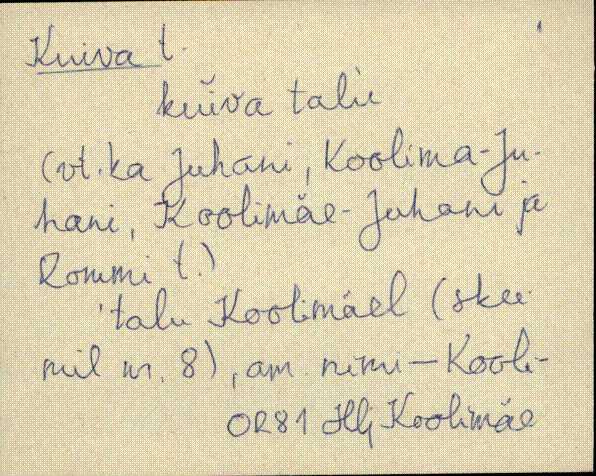 Kuiva t.
kuiva talu
(vt. ka Juhani, Koolima-Ju-
hani, Koolimäe-Juhani ja
Rommi t.)
talu Koolimäel (skee-
mil nr. 8), am. nimi - Kooli-
OR81 Hlj Koolimäe